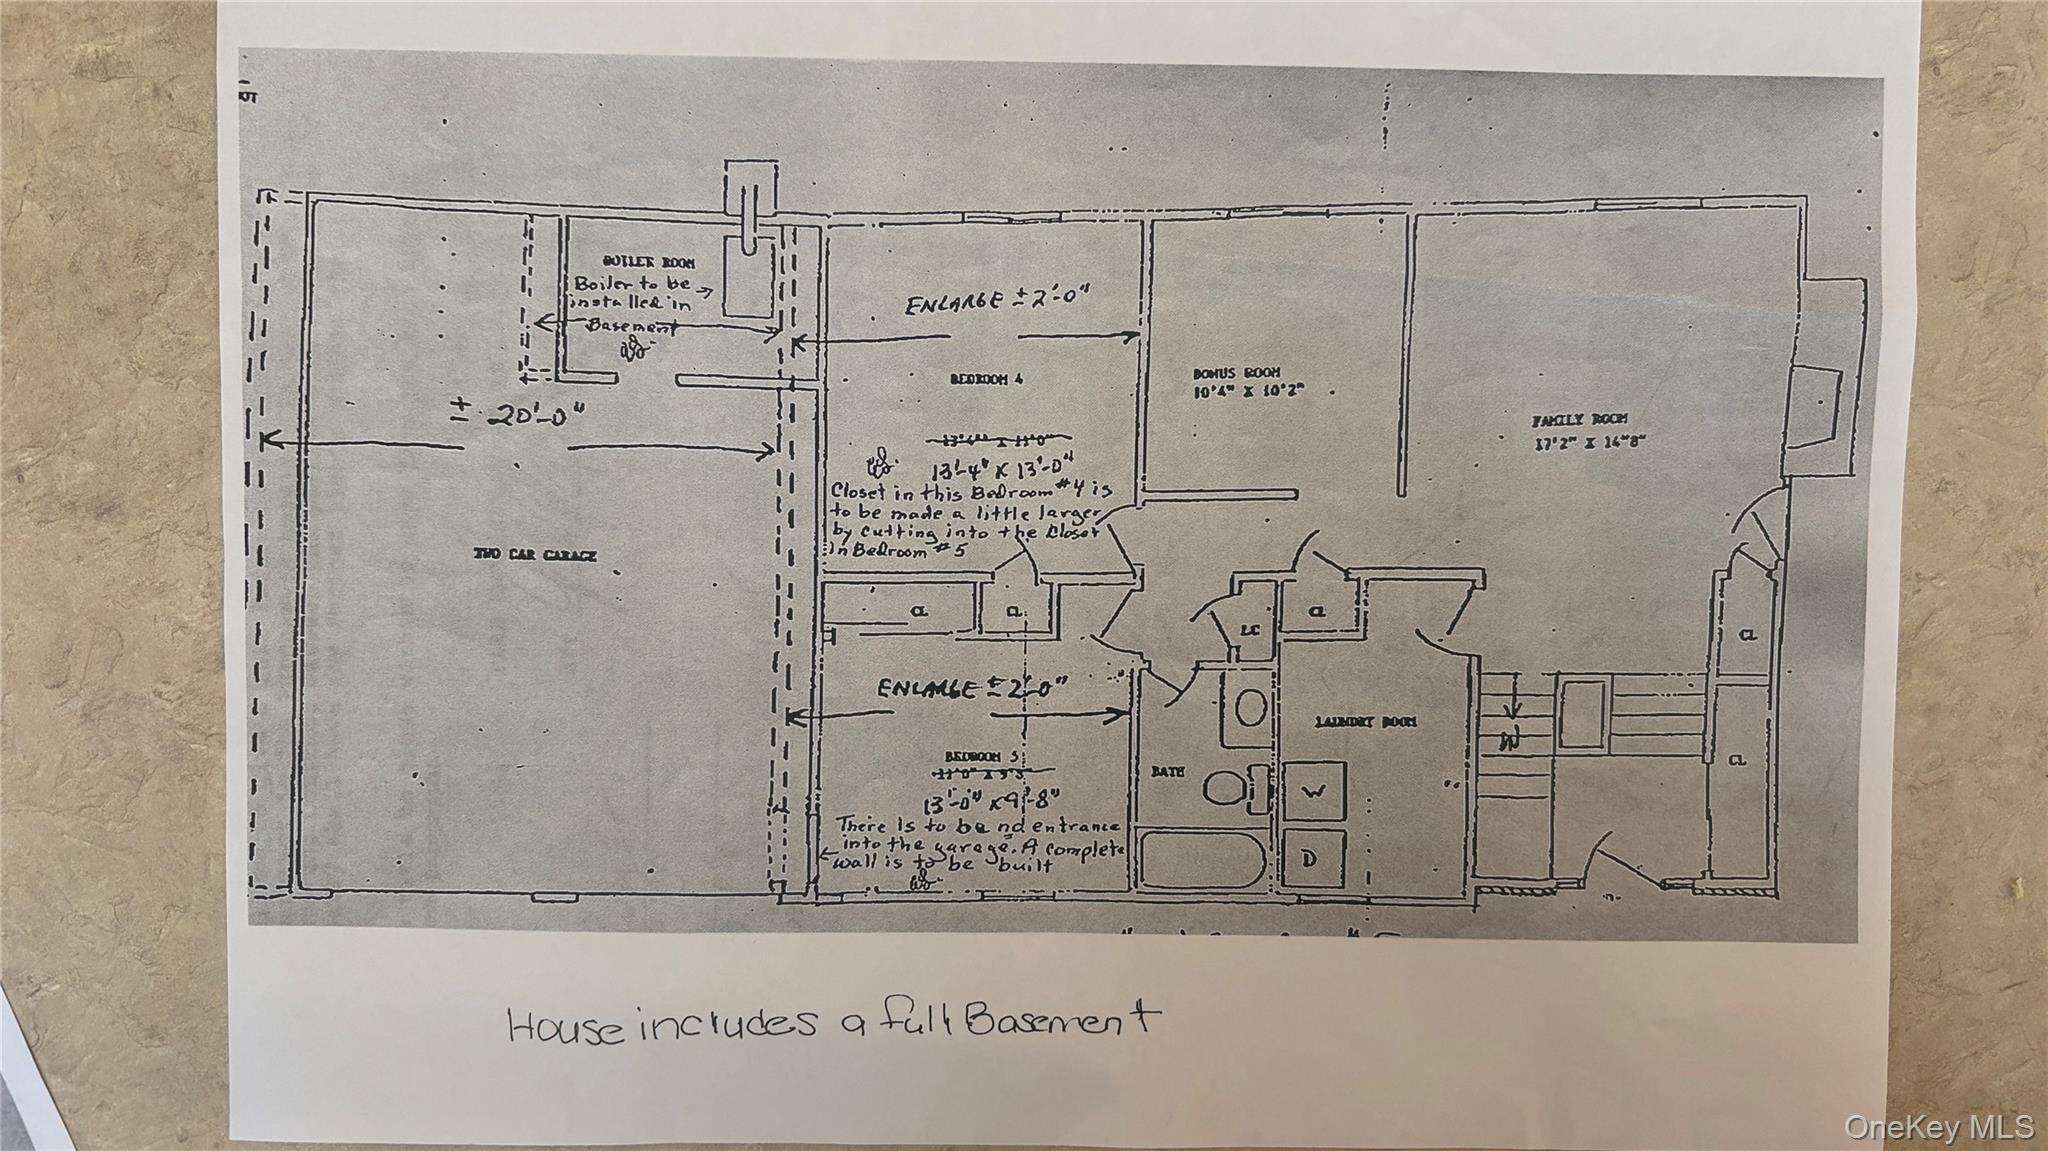 BOILER ROOM
Boiler to be
installed in
Basement
± 20'-0"
TWO CAR GARAGE
ENLARGE ± 2'-0"
BEDROOM 4
13'4" X 11'0"
13'-4" X 13'-0"
Closet in this Bedroom #4 is
to be made a little larger
by cutting into the Closet
in Bedroom #5
BONUS ROOM
10'4" X 10'2"
FAMILY ROOM
17'2" X 14'8"
CL
CL
LC
CL
CL
CL
ENLARGE ± 2'-0"
BEDROOM 5
13'-0" x 9'-8"
There is to be no entrance
into the garage. A complete
wall is to be built
BATH
LAUNDRY ROOM
W
D
House includes a full Basement
OneKey MLS